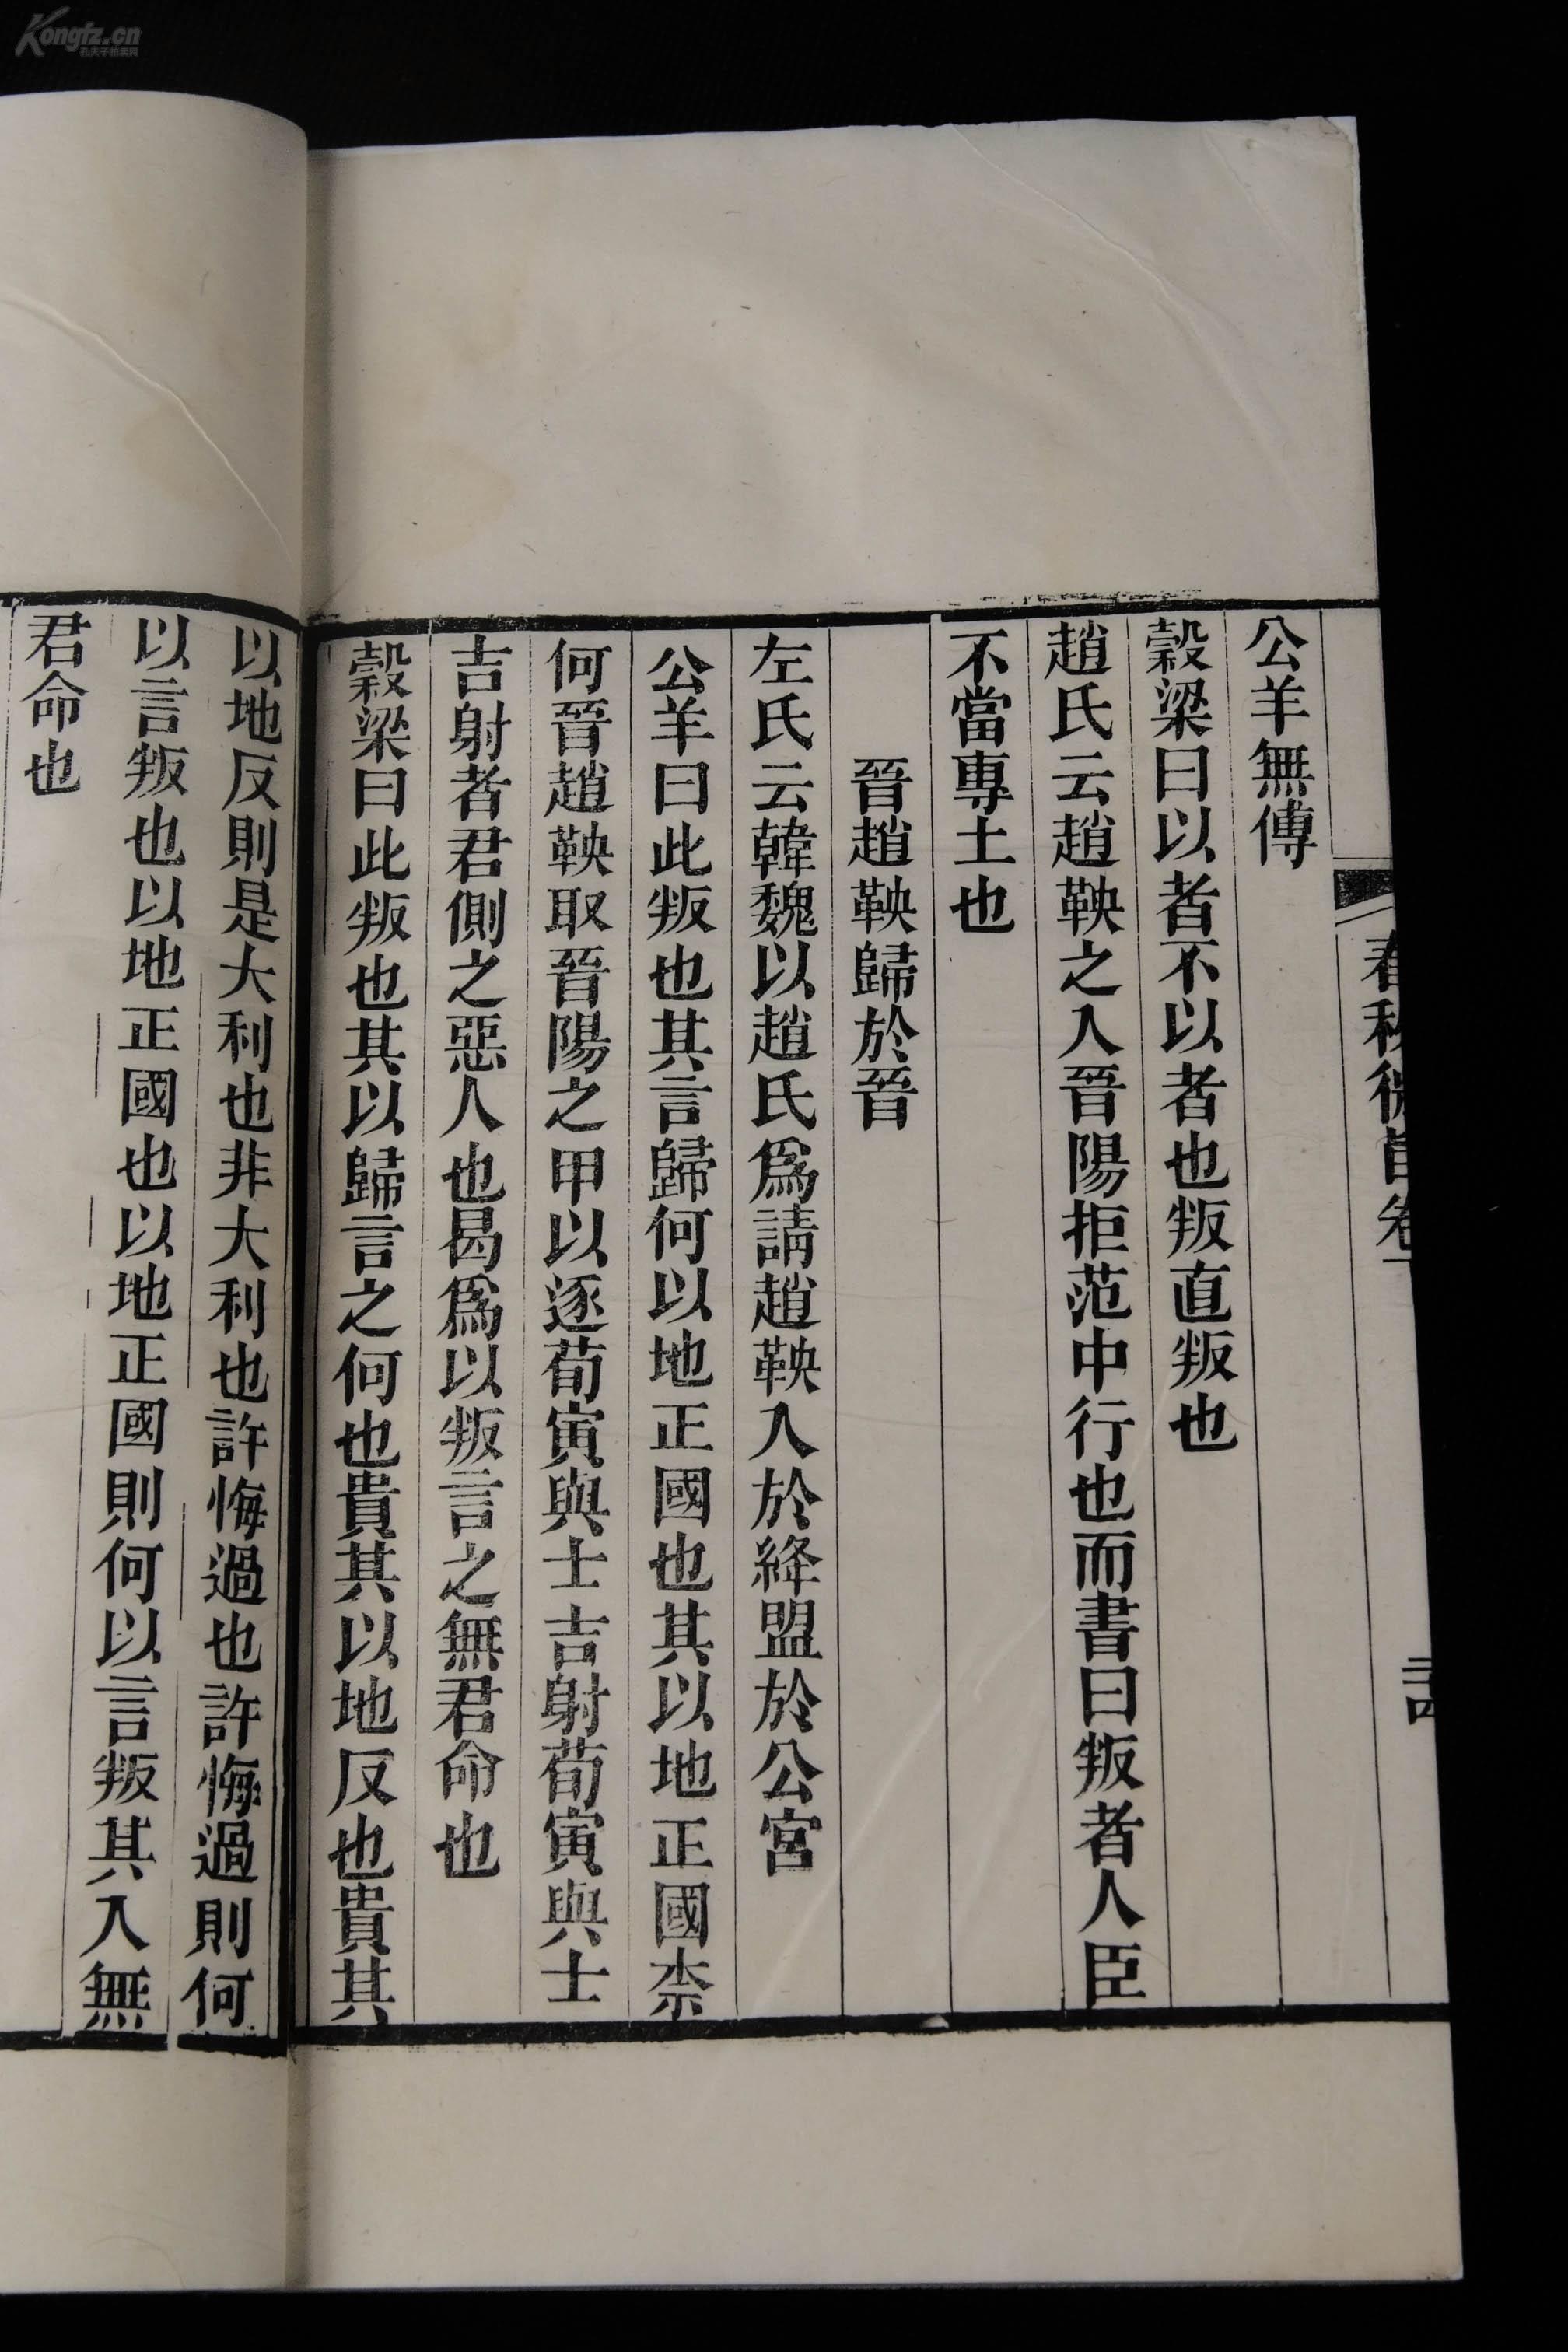 Kongfz.cn
孔夫子拍卖网
春秋微旨卷
公羊無傳
穀梁曰以者不以者也叛直叛也
趙氏云趙鞅之入晉陽拒范中行也而書曰叛者人臣
不當專土也
晉趙鞅歸於晉
左氏云韓魏以趙氏爲請趙鞅入於絳盟於公宮
公羊曰此叛也其言歸何以地正國也其以地正國柰
何晉趙鞅取晉陽之甲以逐荀寅與士吉射荀寅與士
吉射者君側之惡人也曷爲以叛言之無君命也
穀梁曰此叛也其以歸言之何也貴其以地反也貴其
以地反則是大利也非大利也許悔過也許悔過則何
以言叛也以地正國也以地正國則何以言叛其入無
君命也